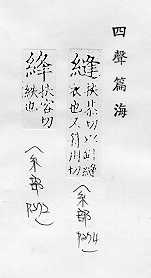 四聲篇海
縫
扶恭切以針縫
衣也又符用切
(糸部
P.294)
絳
扶容切
紩也
(糸部
P.292)